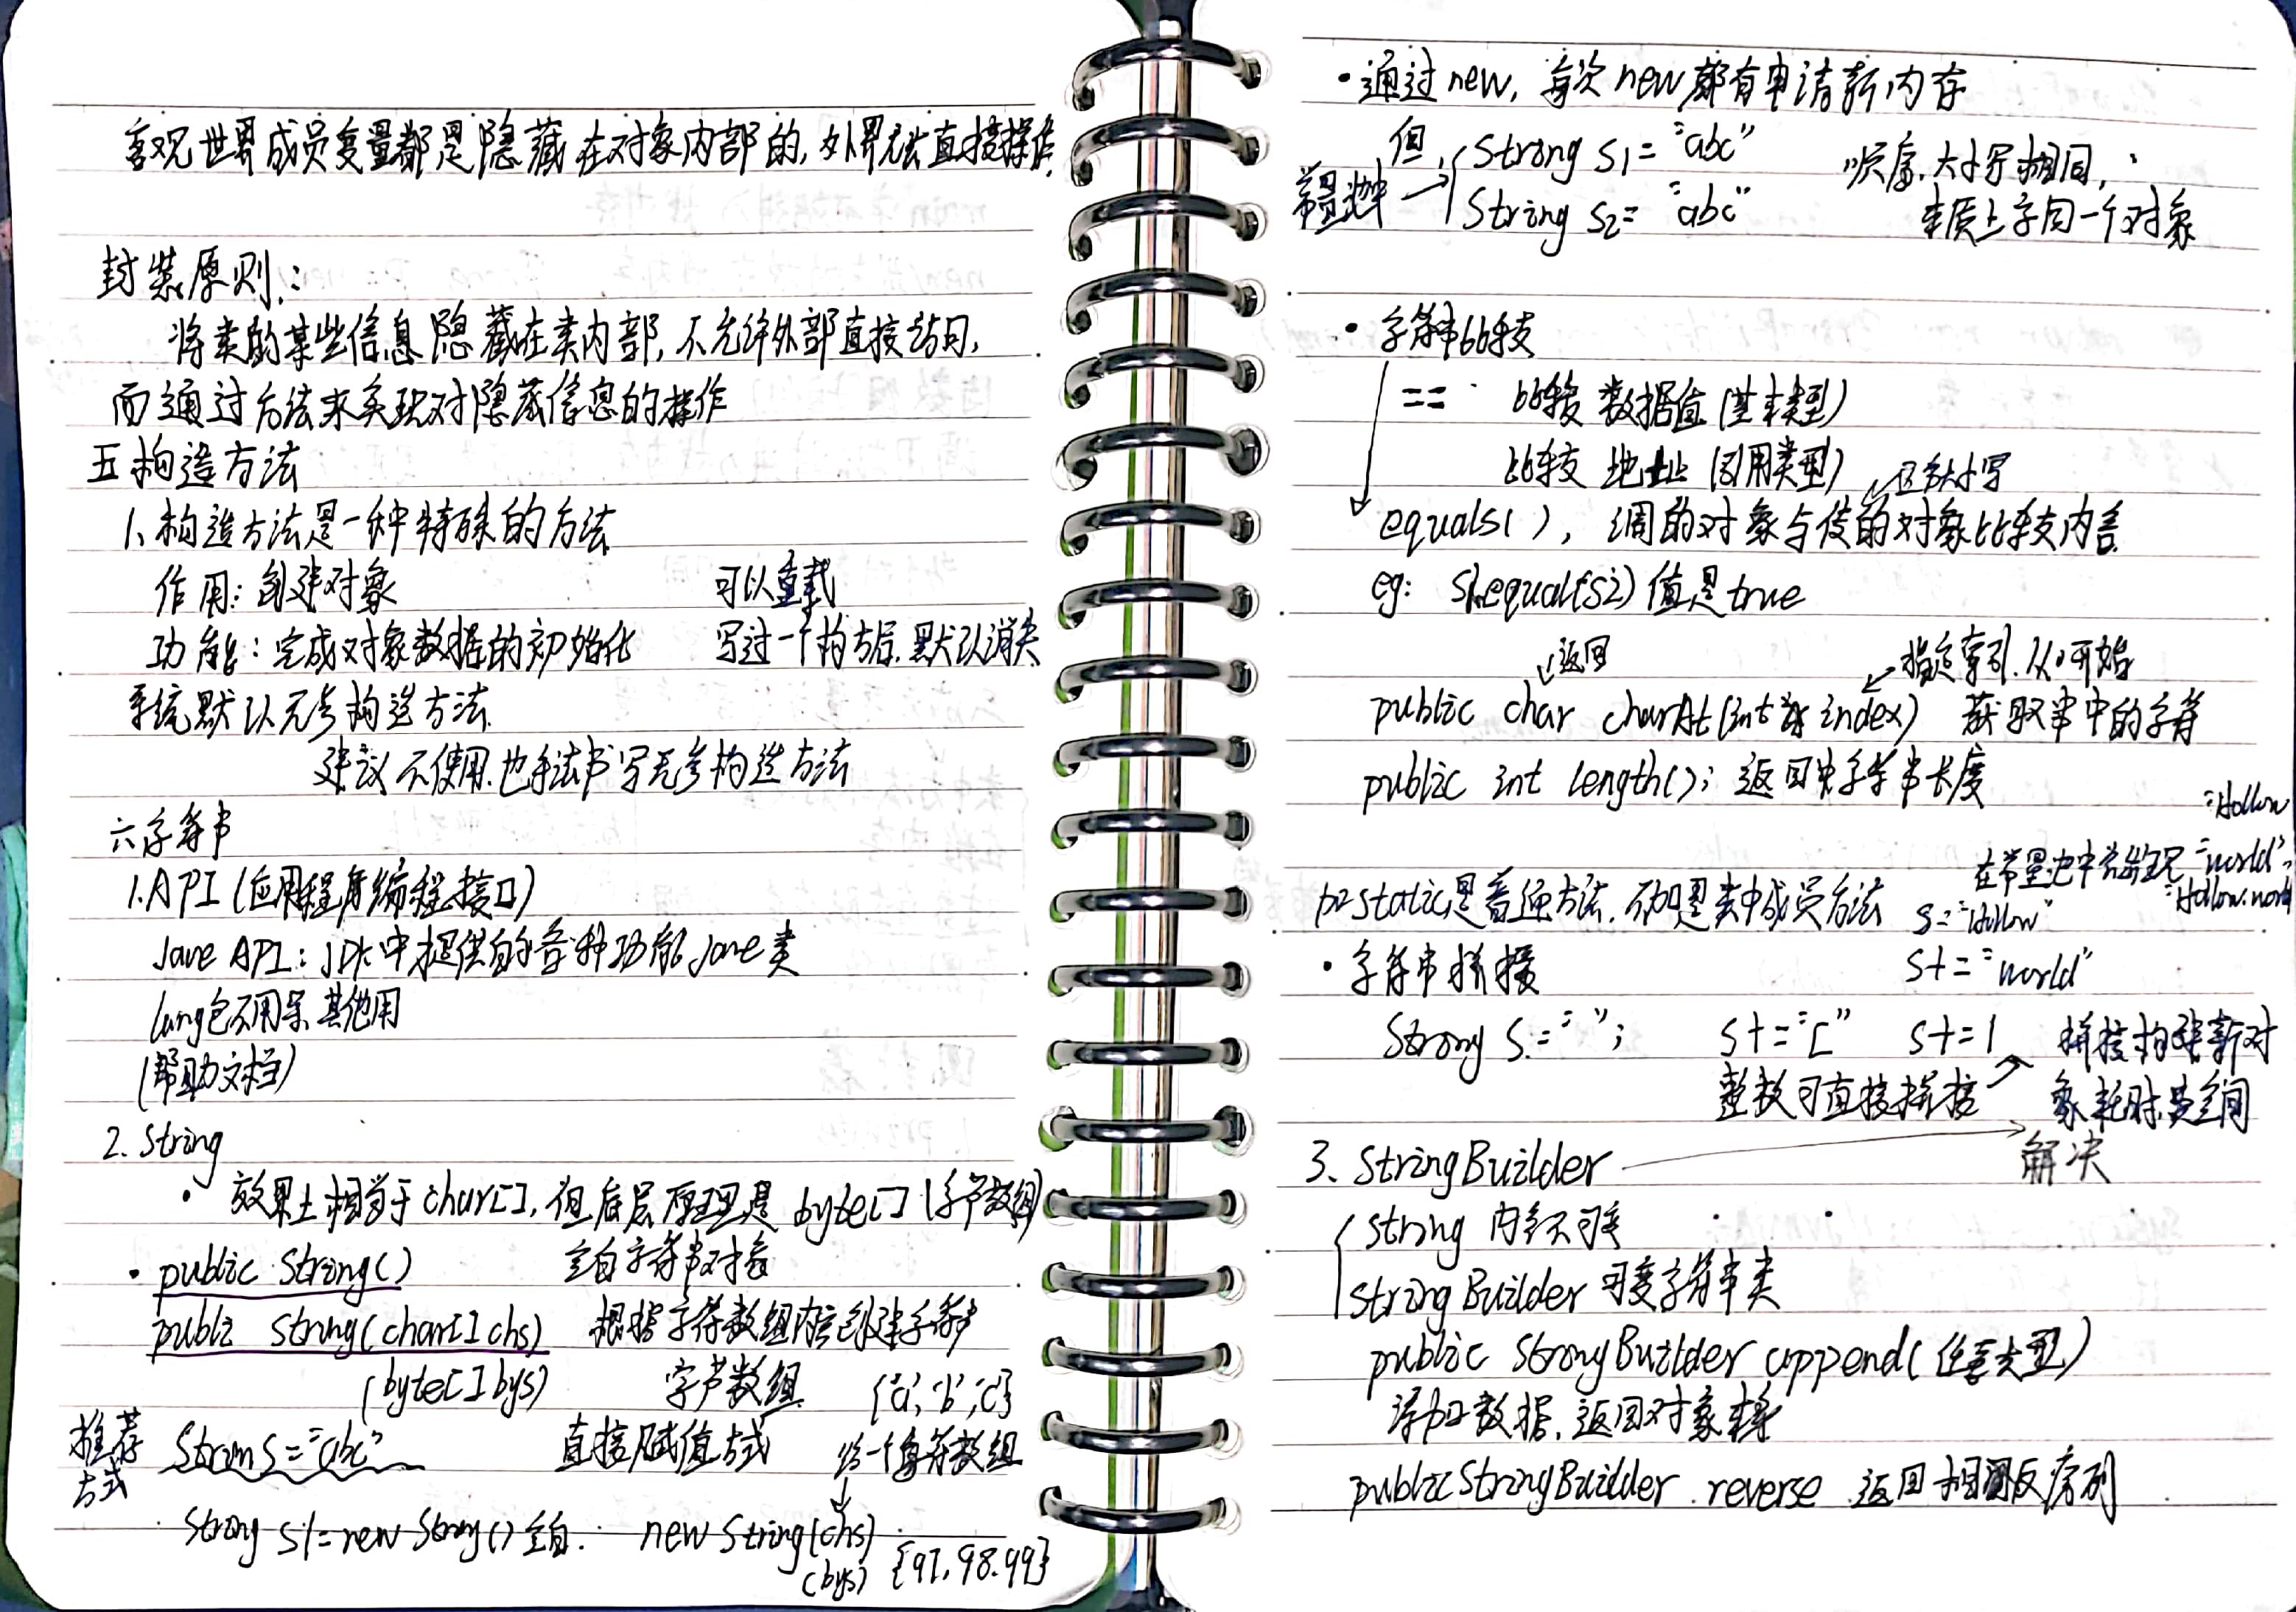 客观世界成员变量都是隐藏在对象内部的,外界无法直接操作
封装原则:
将类的某些信息隐藏在类内部,不允许外部直接访问,
而通过方法来实现对隐藏信息的操作
五 构造方法
1、构造方法是一种特殊的方法
作用:创建对象 可以重载
功能:完成对象数据的初始化 写过一个构方后,默认消失
系统默认无参构造方法
建议不使用,也手法书写无参构造方法
六 字符串
1.API(应用程序编程接口)
Jave API:JDK中提供的各种功能Jave类
lang包不用导 其他用
(帮助文档)
2. String
· 效果上相当于char[],但底层原理是 byte[](字节数组)
· public String() 空白字符串对象
public String(char[] chs) 根据字符数组内容创建字符串
(byte[] bys) 字节数组 {'a','b','c'}
推荐方式 String S="abc" 直接赋值方式 给一个字符数组
String S1=new String() 空白. new String(chs)
(bys) {97,98.99}
· 通过new,每次new都有申请新内存
但 String S1="abc" 顺序,大小写相同,
常量池中 → String S2="abc" 本质上字同一个对象
· 字符串比较
== 比较 数据值(基本类型)
比较 地址(引用类型) 区分大小写
equals(),调的对象与传的对象比较内容
eg: S1.equals(S2)值是true
返回 指定索引.从0开始
public char charAt(int index) 获取串中的字符
public int length(); 返回字符串长度
"Hollow
在常量池中 "world"
加static是普通方法,不加是类中成员方法 S="Hollow" "Hollow world
· 字符串拼接 S+="world"
String S=" "; S+="[" S+=1 拼接构建新对
整数可直接拼接 象耗时费空间
3. StringBuilder → 解决
String 内容不可变
StringBuilder 可变字符串类
public StringBuilder append(任意类型)
添加数据,返回对象本身
public StringBuilder reverse 返回相反序列